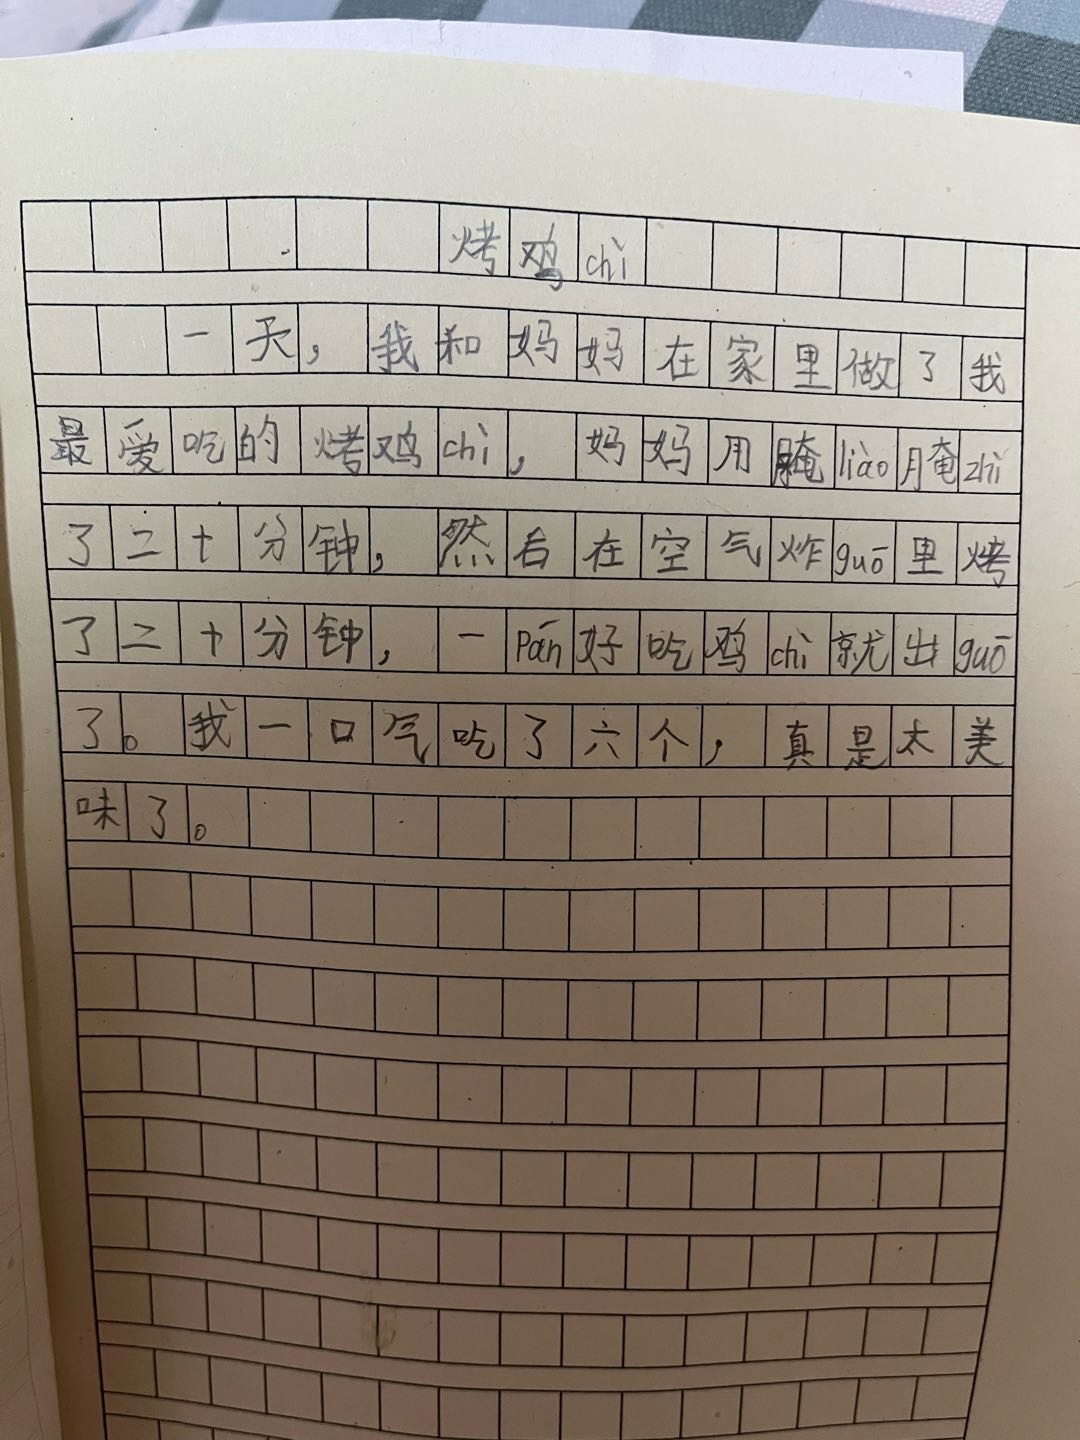 烤鸡chì
一天，我和妈妈在家里做了我
最爱吃的烤鸡chì，妈妈用腌liào腌zhì
了二十分钟，然后在空气炸guō里烤
了二十分钟，一pán好吃鸡chì就出guō
了。我一口气吃了六个，真是太美
味了。